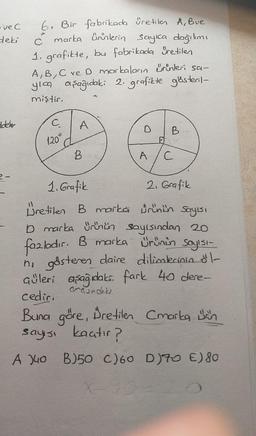 ve C
deki
6. Bir fabrikada üretilen A, B ve
C marka ürünlerin sayıca dağılımı
1. grafikte, bu fabrikada üretilen
A, B, C ve D markaların ürünleri sa-
yıca aşağıdaki 2. grafikte gösteril-
miştir.
C A
120°
B
D B
A C
1. Grafik 2. Grafik
Üretilen B marka ürünün sayısı
D marka ürünün sayısından 20
fazladır. B marka ürünün sayısı-
nı gösteren daire dilimlerinin öl-
çüleri aşağıdaki fark 40 dere-
arasındaki
cedir.
Buna göre, üretilen C marka ürün
sayısı kaçtır?
A) 40 B) 50 C) 60 D) 70 E) 80